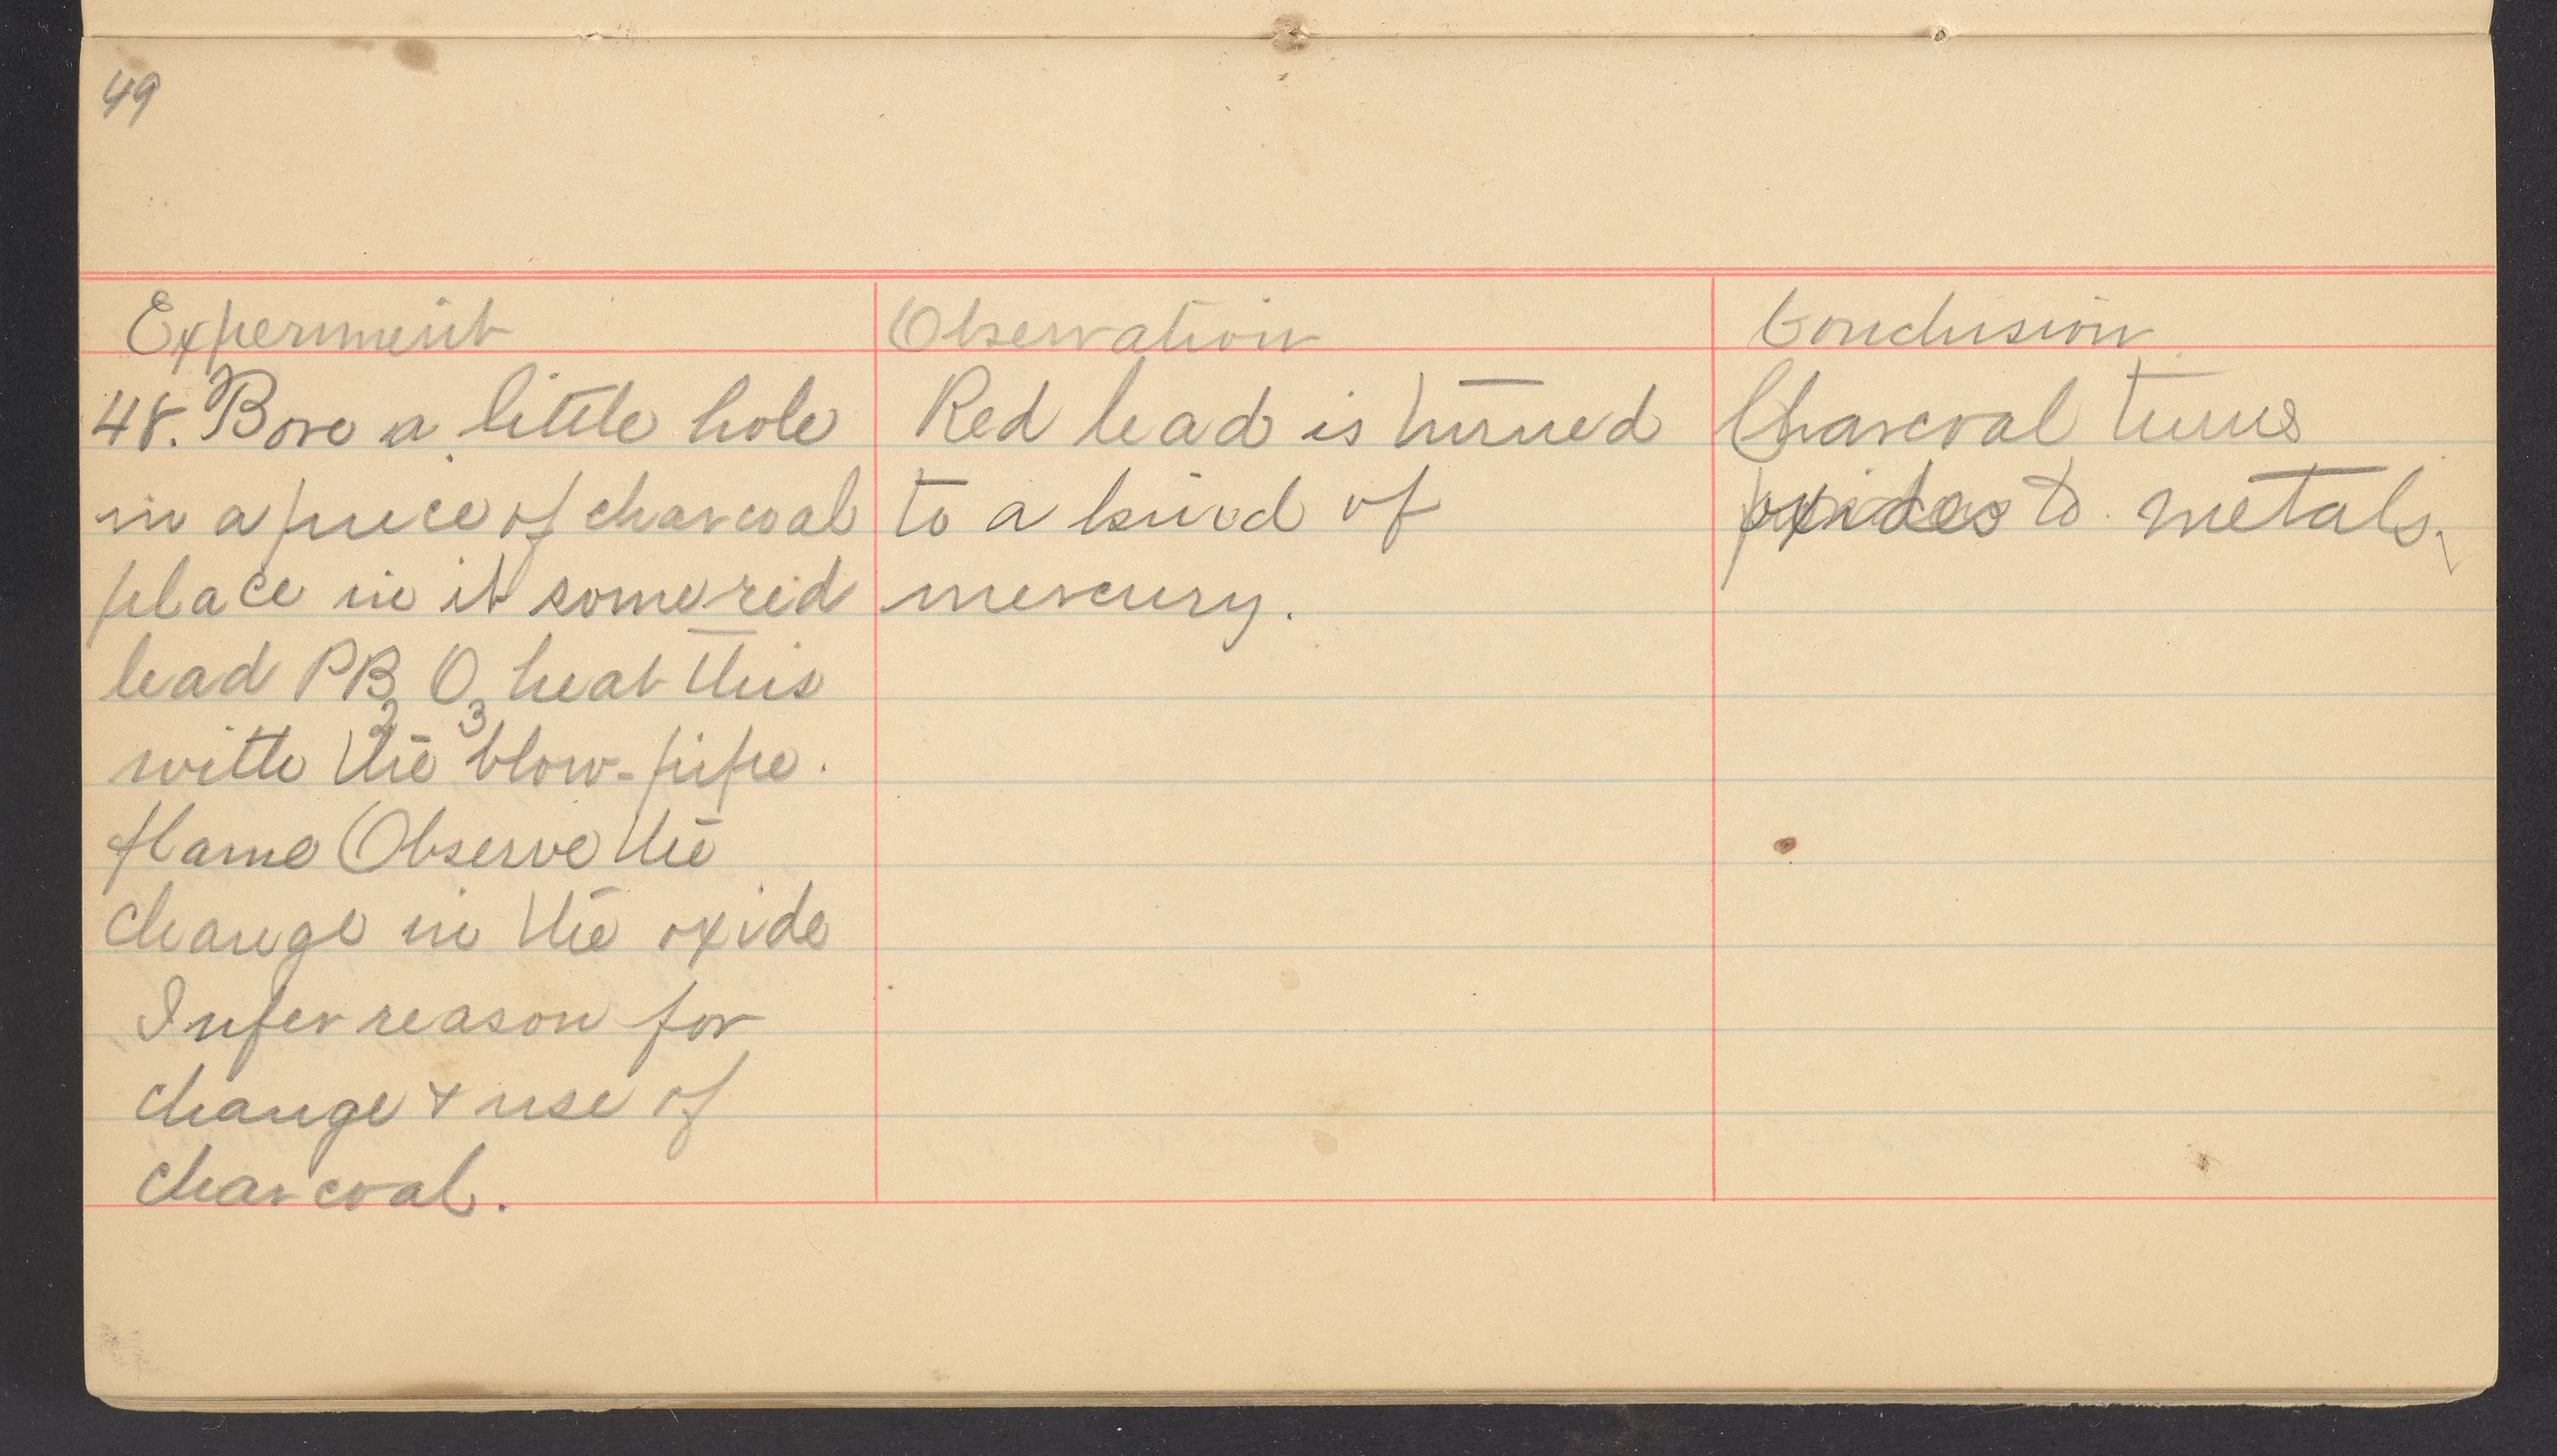 49
Experiment
48. Bore a little hole
in a piece of charcoal
place in it some red
lead PB2 O3 heat this
with the blow-pipe.
flame Observe the
change in the oxide
Infer reason for
change & use of
charcoal.
Observation
Red lead is turned
to a kind of
mercury.
Conclusion
Charcoal turns
oxides to metals.